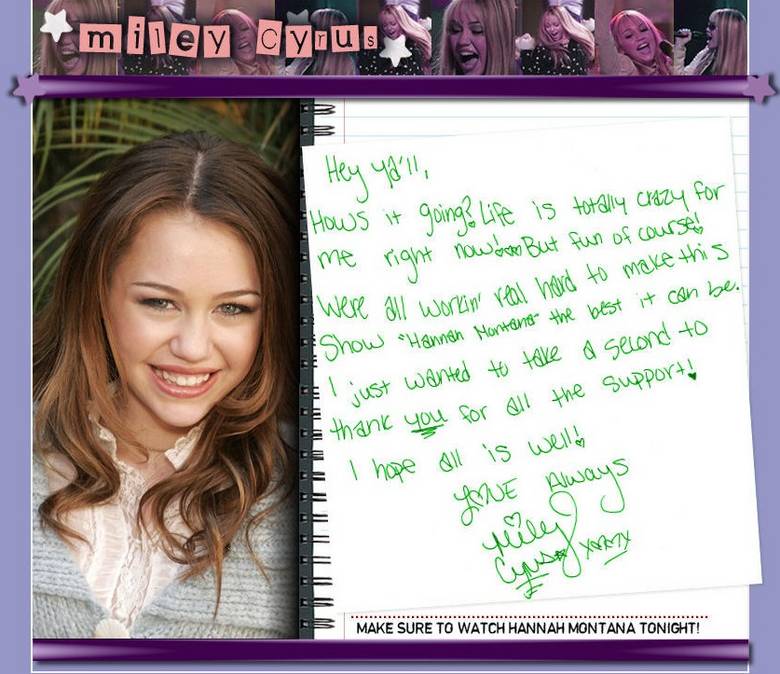 miley cyrus
Hey ya'll,
Hows it going? Life is totally crazy for
me right now! But fun of course!
We're all workin' real hard to make this
Show "Hannah Montana" the best it can be.
I just wanted to take a second to
thank you for all the support!
I hope all is well!
LOVE Always
Miley
Cyrus
MAKE SURE TO WATCH HANNAH MONTANA TONIGHT!